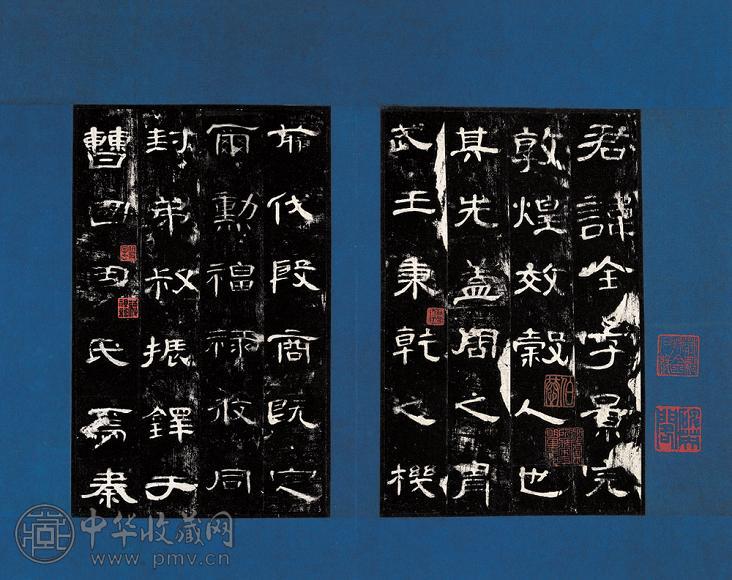 君諱全字景完
敦煌效穀人也
其先蓋周之胄
武王秉乾之機
翦伐殷商既定
爾勳福祿攸同
封弟叔振鐸于
曹國因氏焉秦
中华收藏网
www.pmv.cn